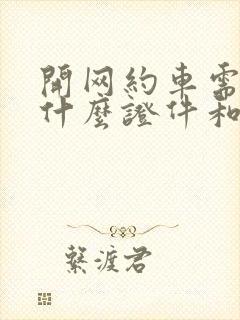 開网約車需
什麼證件和
繫渡君